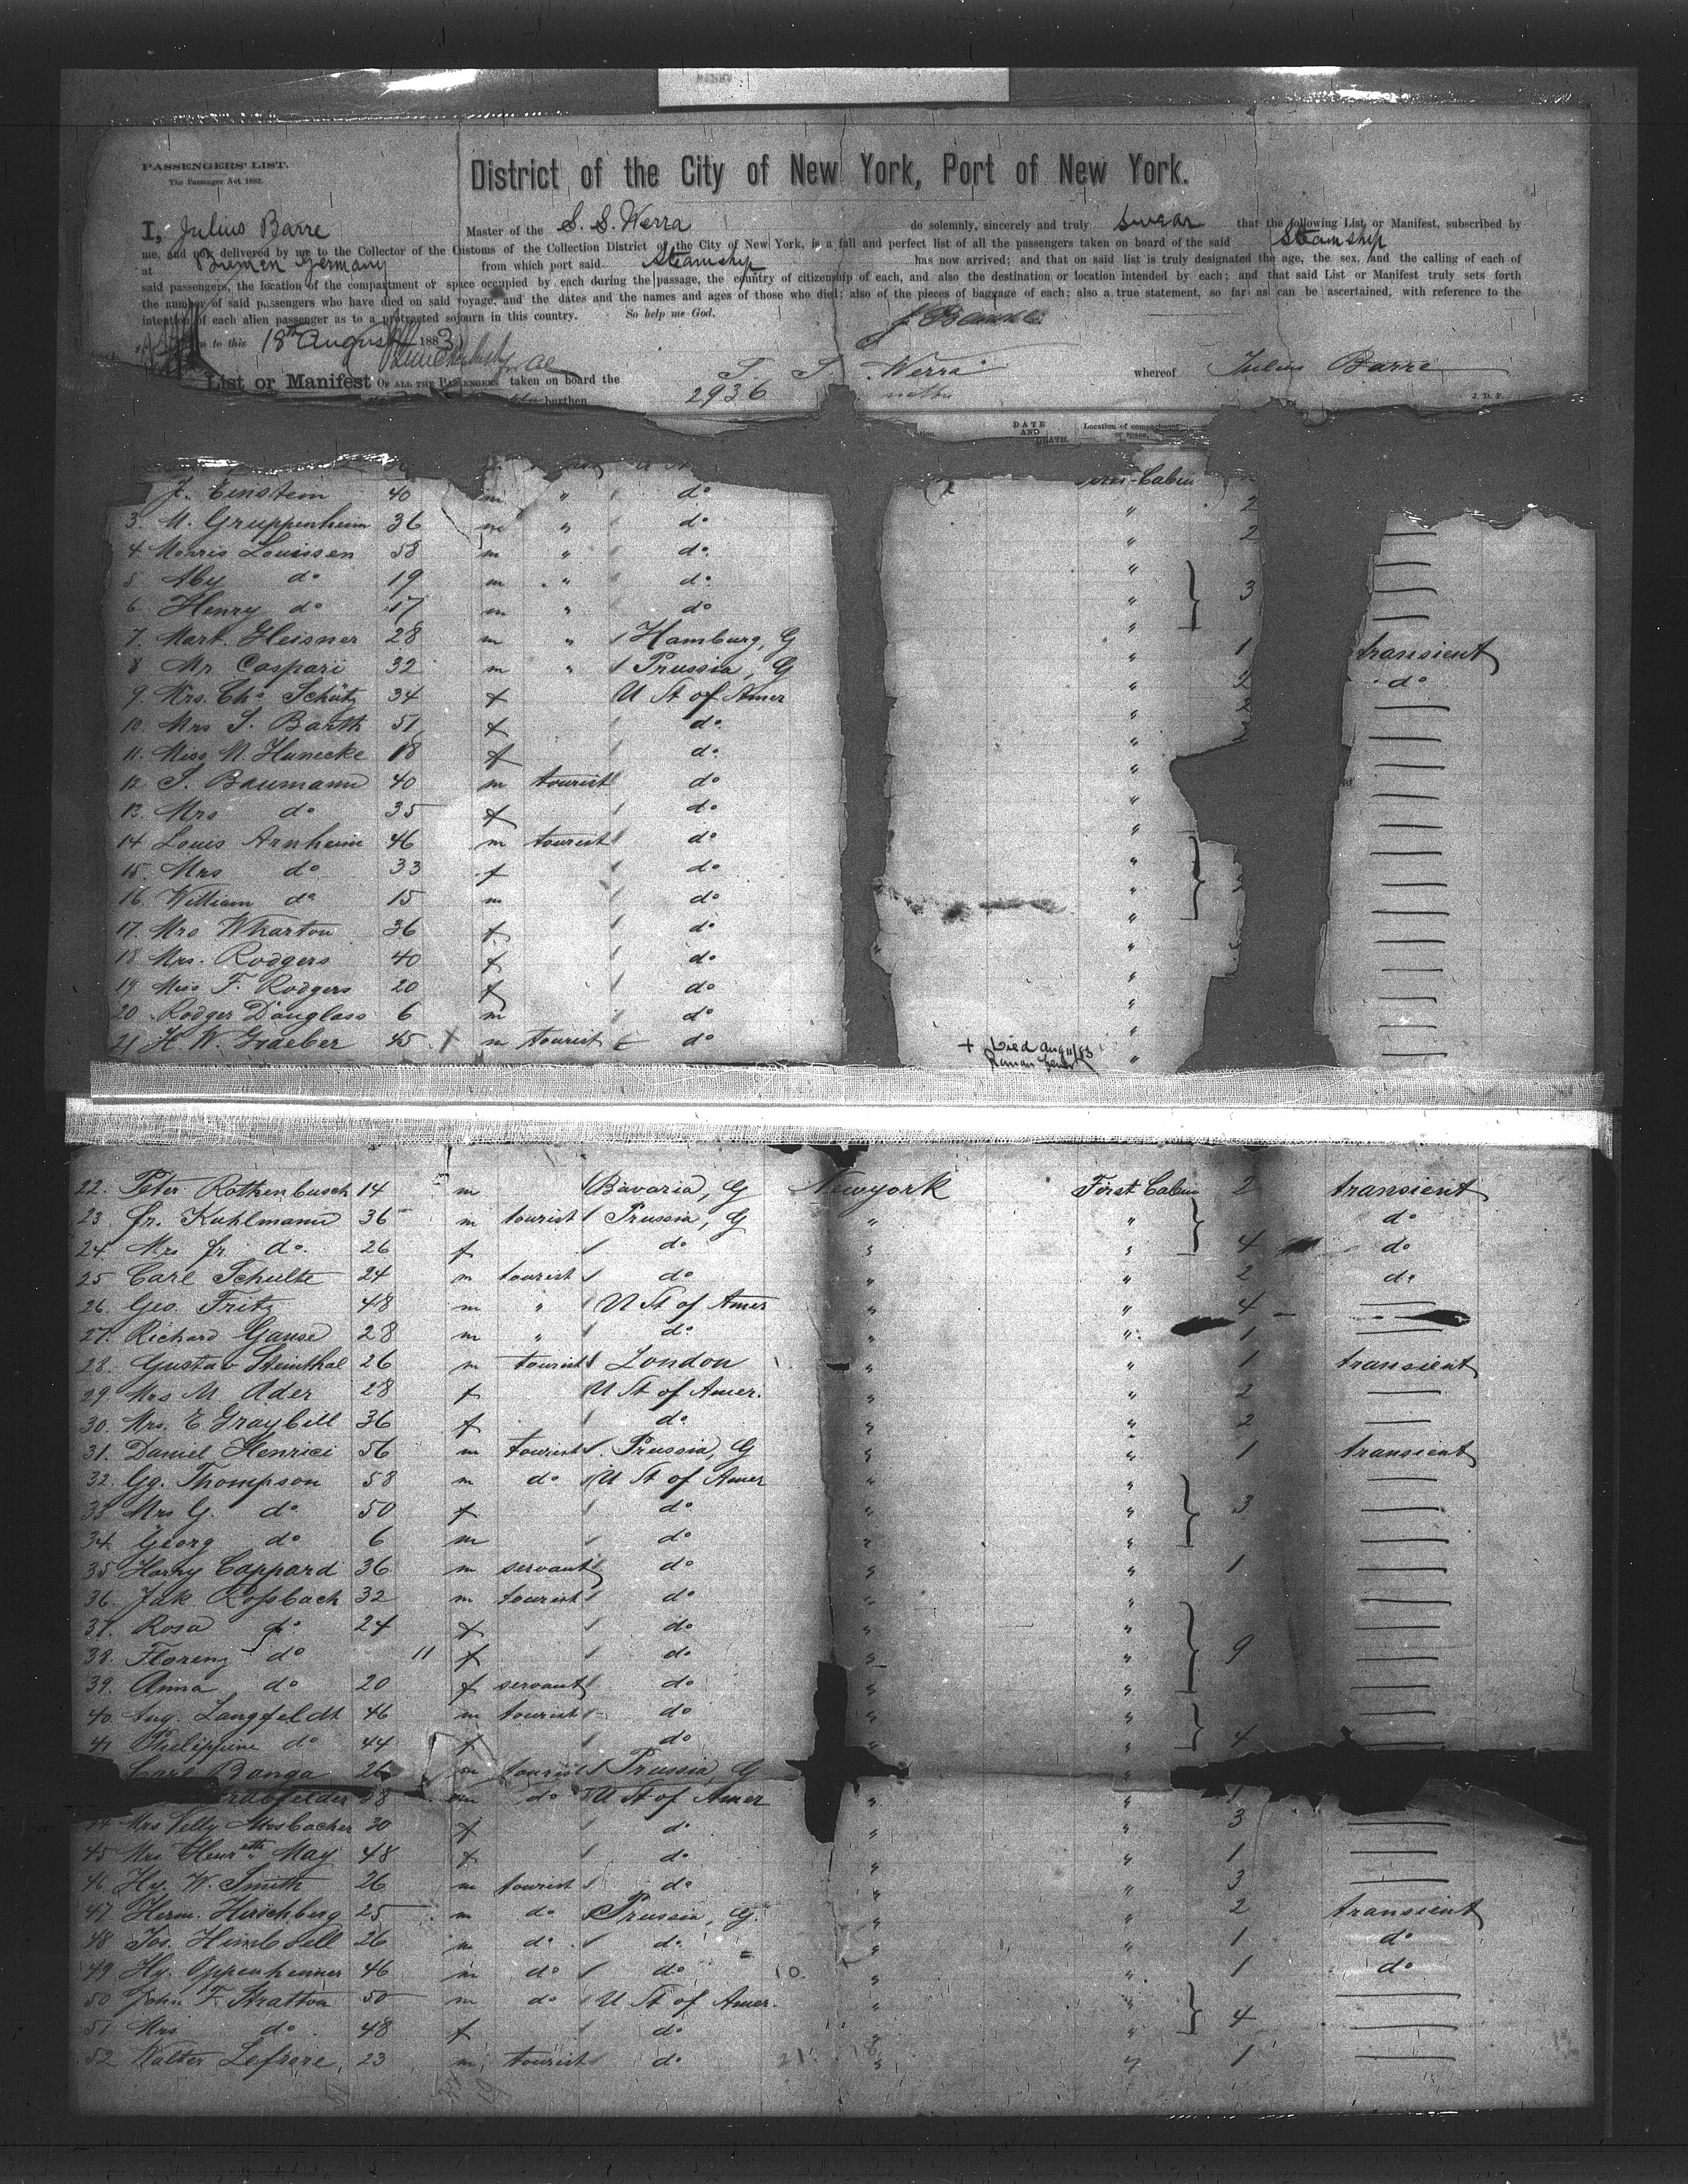 PASSENGERS' LIST.
The Passenger Act 1882.
District of the City of New York, Port of New York.
I, Julius Barre Master of the S. S. Werra do solemnly, sincerely and truly swear that the following List or Manifest, subscribed by
me, and now delivered by me to the Collector of the Customs of the Collection District of the City of New York, is a full and perfect list of all the passengers taken on board of the said Steamship
at Bremen Germany from which port said Steamship has now arrived; and that on said list is truly designated the age, the sex, and the calling of each of
said passengers, the location of the compartment or space occupied by each during the passage, the country of citizenship of each, and also the destination or location intended by each; and that said List or Manifest truly sets forth
the number of said passengers who have died on said voyage, and the dates and the names and ages of those who died; also of the pieces of baggage of each; also a true statement, so far as can be ascertained, with reference to the
intention of each alien passenger as to a protracted sojourn in this country. So help me God. J. Barre
to this 18th August 1883
List or Manifest OF ALL THE PASSENGERS taken on board the S. S. Werra whereof Julius Barre
burthen 2936 J. D. F.
DATE AND DEATH. Location of compartment or space.
J. Einstein 40 m " do First Cabin 2
3. M. Gruppenheim 36 m " do " 2
4 Morris Louissen 58 m " do "
5 Aby do 19 m " do " 3
6. Henry do 17 m " do "
7. Mart. Heisner 28 m " Hamburg, G " 1 transient
8 Mr. Caspari 32 m " Prussia, G " 2 do
9. Mrs. Chs Schütz 34 f U St of Amer "
10. Mrs S. Barth 51 f do "
11. Miss N. Hunecke 18 f do "
12 S. Baumann 40 m tourist do "
13. Mrs do 35 f do "
14 Louis Arnheim 46 m tourist do "
15. Mrs do 33 f do "
16 William do 15 m do "
17. Mrs Wharton 36 f do "
18. Mrs. Rodgers 40 f do "
19. Miss F. Rodgers 20 f do "
20. Rodger Douglass 6 m do "
21 H. W. Graeber 45 + m tourist do + Died Aug 11/83 "
22. Peter Rothenbusch 14 m Bavaria, G Newyork First Cabin 2 transient
23 Fr. Kuhlmann 36 m tourist Prussia, G " " do
24. Mrs Fr. do 26 f do " " 4 do
25 Carl Schulte 24 m tourist do " " 2 do
26. Geo. Fritz 48 m " U St of Amer " " 4
27. Richard Ganse 28 m " do " " 1
28. Gustav Steinthal 26 m tourist London " " 1 transient
29 Mrs M. Ader 28 f U St of Amer. " " 2
30. Mrs. E Graybill 36 f do " " 2
31. Daniel Henrici 56 m tourist Prussia, G " " 1 transient
32. Gg. Thompson 58 m do U St of Amer " "
33 Mrs G. do 50 f do " " 3
34. Georg do 6 m do " "
35 Harry Cappard 36 m servant do " " 1
36. Jak. Roßbach 32 m tourist do " "
37. Rosa do 24 f do " "
38. Florenz do 11 f do " " 9
39. Anna do 20 f servant do " "
40. Aug. Langfeldt 46 m tourist do " "
41 Philippine do 44 f do " " 4
Carl Banga 26 m tourist Prussia, G "
felder 38 m do U St of Amer " " 1
44 Mrs Nelly Mosbacher 30 f do " " 3
45 Mrs Henrette May 48 f do " " 1
46 Hy. W. Smith 26 m tourist do " " 3
47 Herm. Hirschberg 25 m do Prussia, G. " " 2 transient
48 Jos. Himbsell 26 m do do " " 1 do
49 Hy. Oppenheimer 46 m do do " " 1 do
50 John F. Stratton 50 m do U St of Amer. " "
51 Mrs do 48 f do " " 4
52 Walter Lefrere 23 m tourist do " " 1